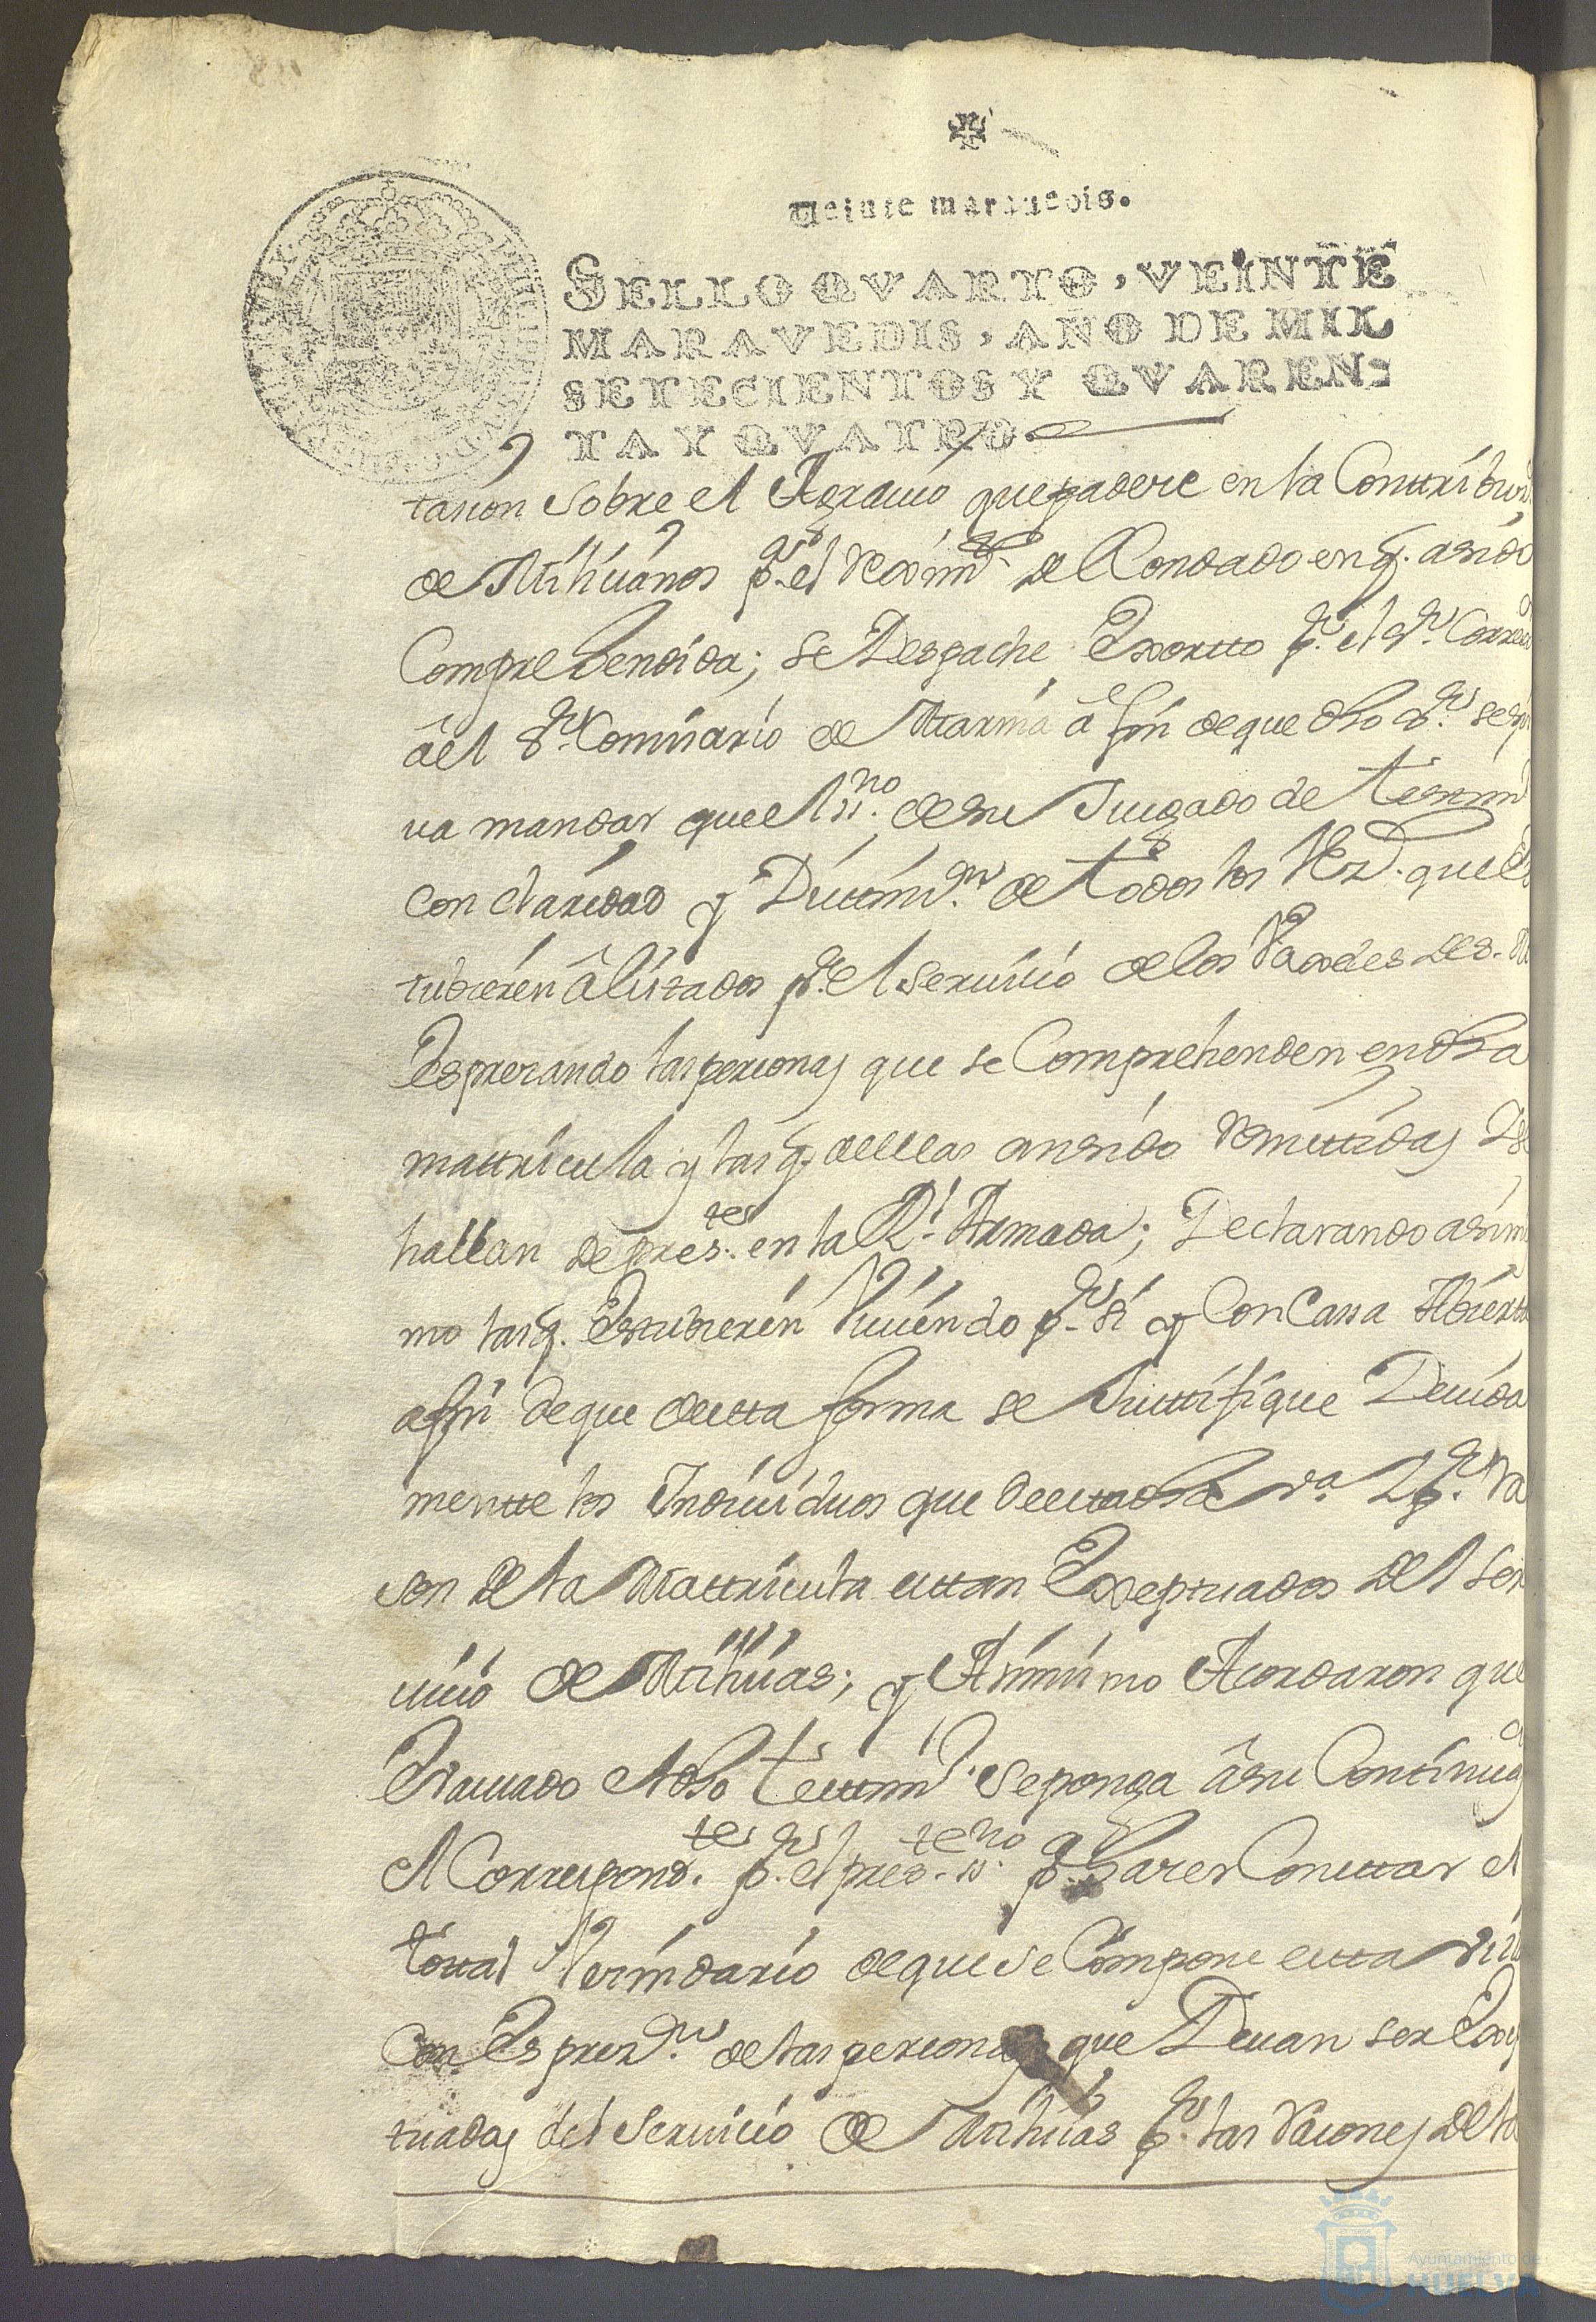 Veinte maravedis.
SELLO QVARTO, VEINTE
MARAVEDIS, AÑO DE MIL
SETECIENTOS Y QVAREN-
TA Y QVATRO.
tasion sobre el Agravio que padece en la Conttribu
de Milicianos pr. el Reximto. del Condado en q. a sido
Comprehendida; se Despache Exortto pr. el Sr. Correx
â el Sr. Comisario de Marina â fin de que dho Sr. se sir
va mandar que el ssno. de su Juzgado de testim
con claridad y Distinsn. de todos los Vzos. que es
tubieren âlistados pr. el servicio de los Vaxeles de S. M
Espresando las personas que se Comprehenden en dha
mattricula y las q. de ellas an sido Remittidas Y se
hallan de press.tes en la Rl. Armada; Declarando asimis
mo las q. Estubieren Viviendo pr. si y Con Cassa Abiertta
a fin de que de estta forma se Justtifique Devida
mentte los Individuos que de estta dha va. Y pr. Ra
son de la Mattricula esttan Exseptuados del ser
vicio de Milicias; y Asimismo Acordaron que
Evacuado el dho testtimo. se ponga â su Continuaon
el Correspondte. pr. el preste. ssno. pa. haser Consttar el
tottal Vesindario de que se Compone estta villa
Con Espresn. de las personas que Devan ser Exsep
tuadas del Servicio de Milicias pr. las Rasones de la
Ayuntamiento de
HUELVA